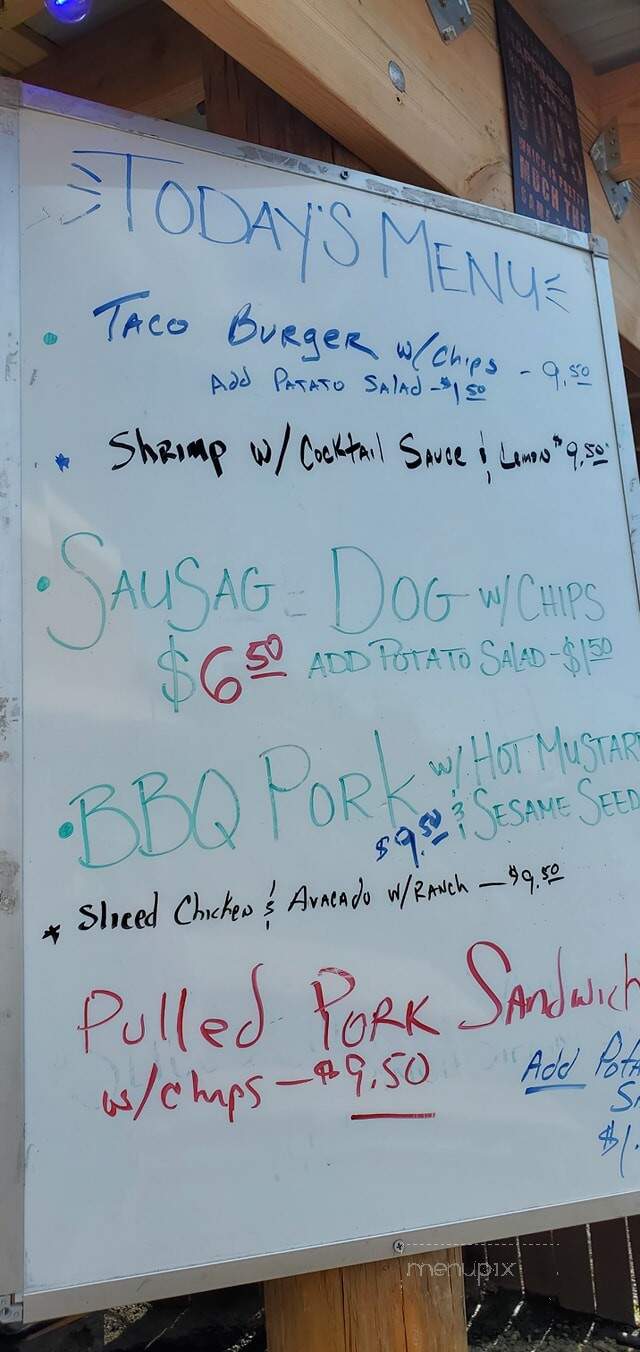 TODAY'S MENU
TACO BURGER w/Chips - 9.50
ADD PATATO SALAD - $1.50
Shrimp w/Cocktail Sauce & Lemon $9.50
SAUSAG DOG W/CHIPS
$6.50 ADD POTATO SALAD - $1.50
BBQ PORK W/HOT MUSTAR
$9.50 & SESAME SEED
Sliced Chicken & AVACADO W/RANCH - $9.50
Pulled PORK SANDWICH
w/chips - $9.50
Add Pota
$1.
MUCH THE
menupix